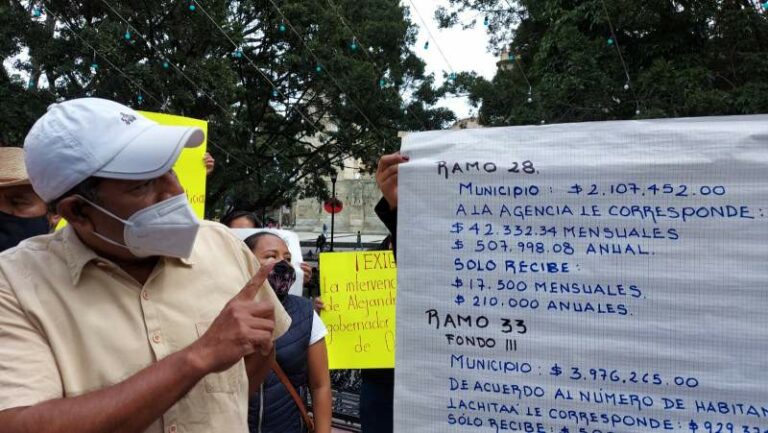 ¡EXIG
La intervenc
de Alejandr
gobernador
de O
RAMO 28.
MUNICIPIO : $ 2,107,452.00
A LA AGENCIA LE CORRESPONDE:
$ 42.332.34 MENSUALES
$ 507.998.08 ANUAL.
SOLO RECIBE :
$ 17.500 MENSUALES.
$ 210.000 ANUALES.
RAMO 33
FONDO III
MUNICIPIO : $ 3,976,265.00
DE ACUERDO AL NÚMERO DE HABITAN
LACHITAA´ LE CORRESPONDE: $ 929,32
SÓLO RECIBE : $ 500